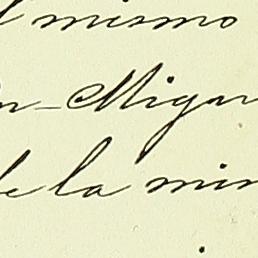 l mismo
n-Migu
de la min